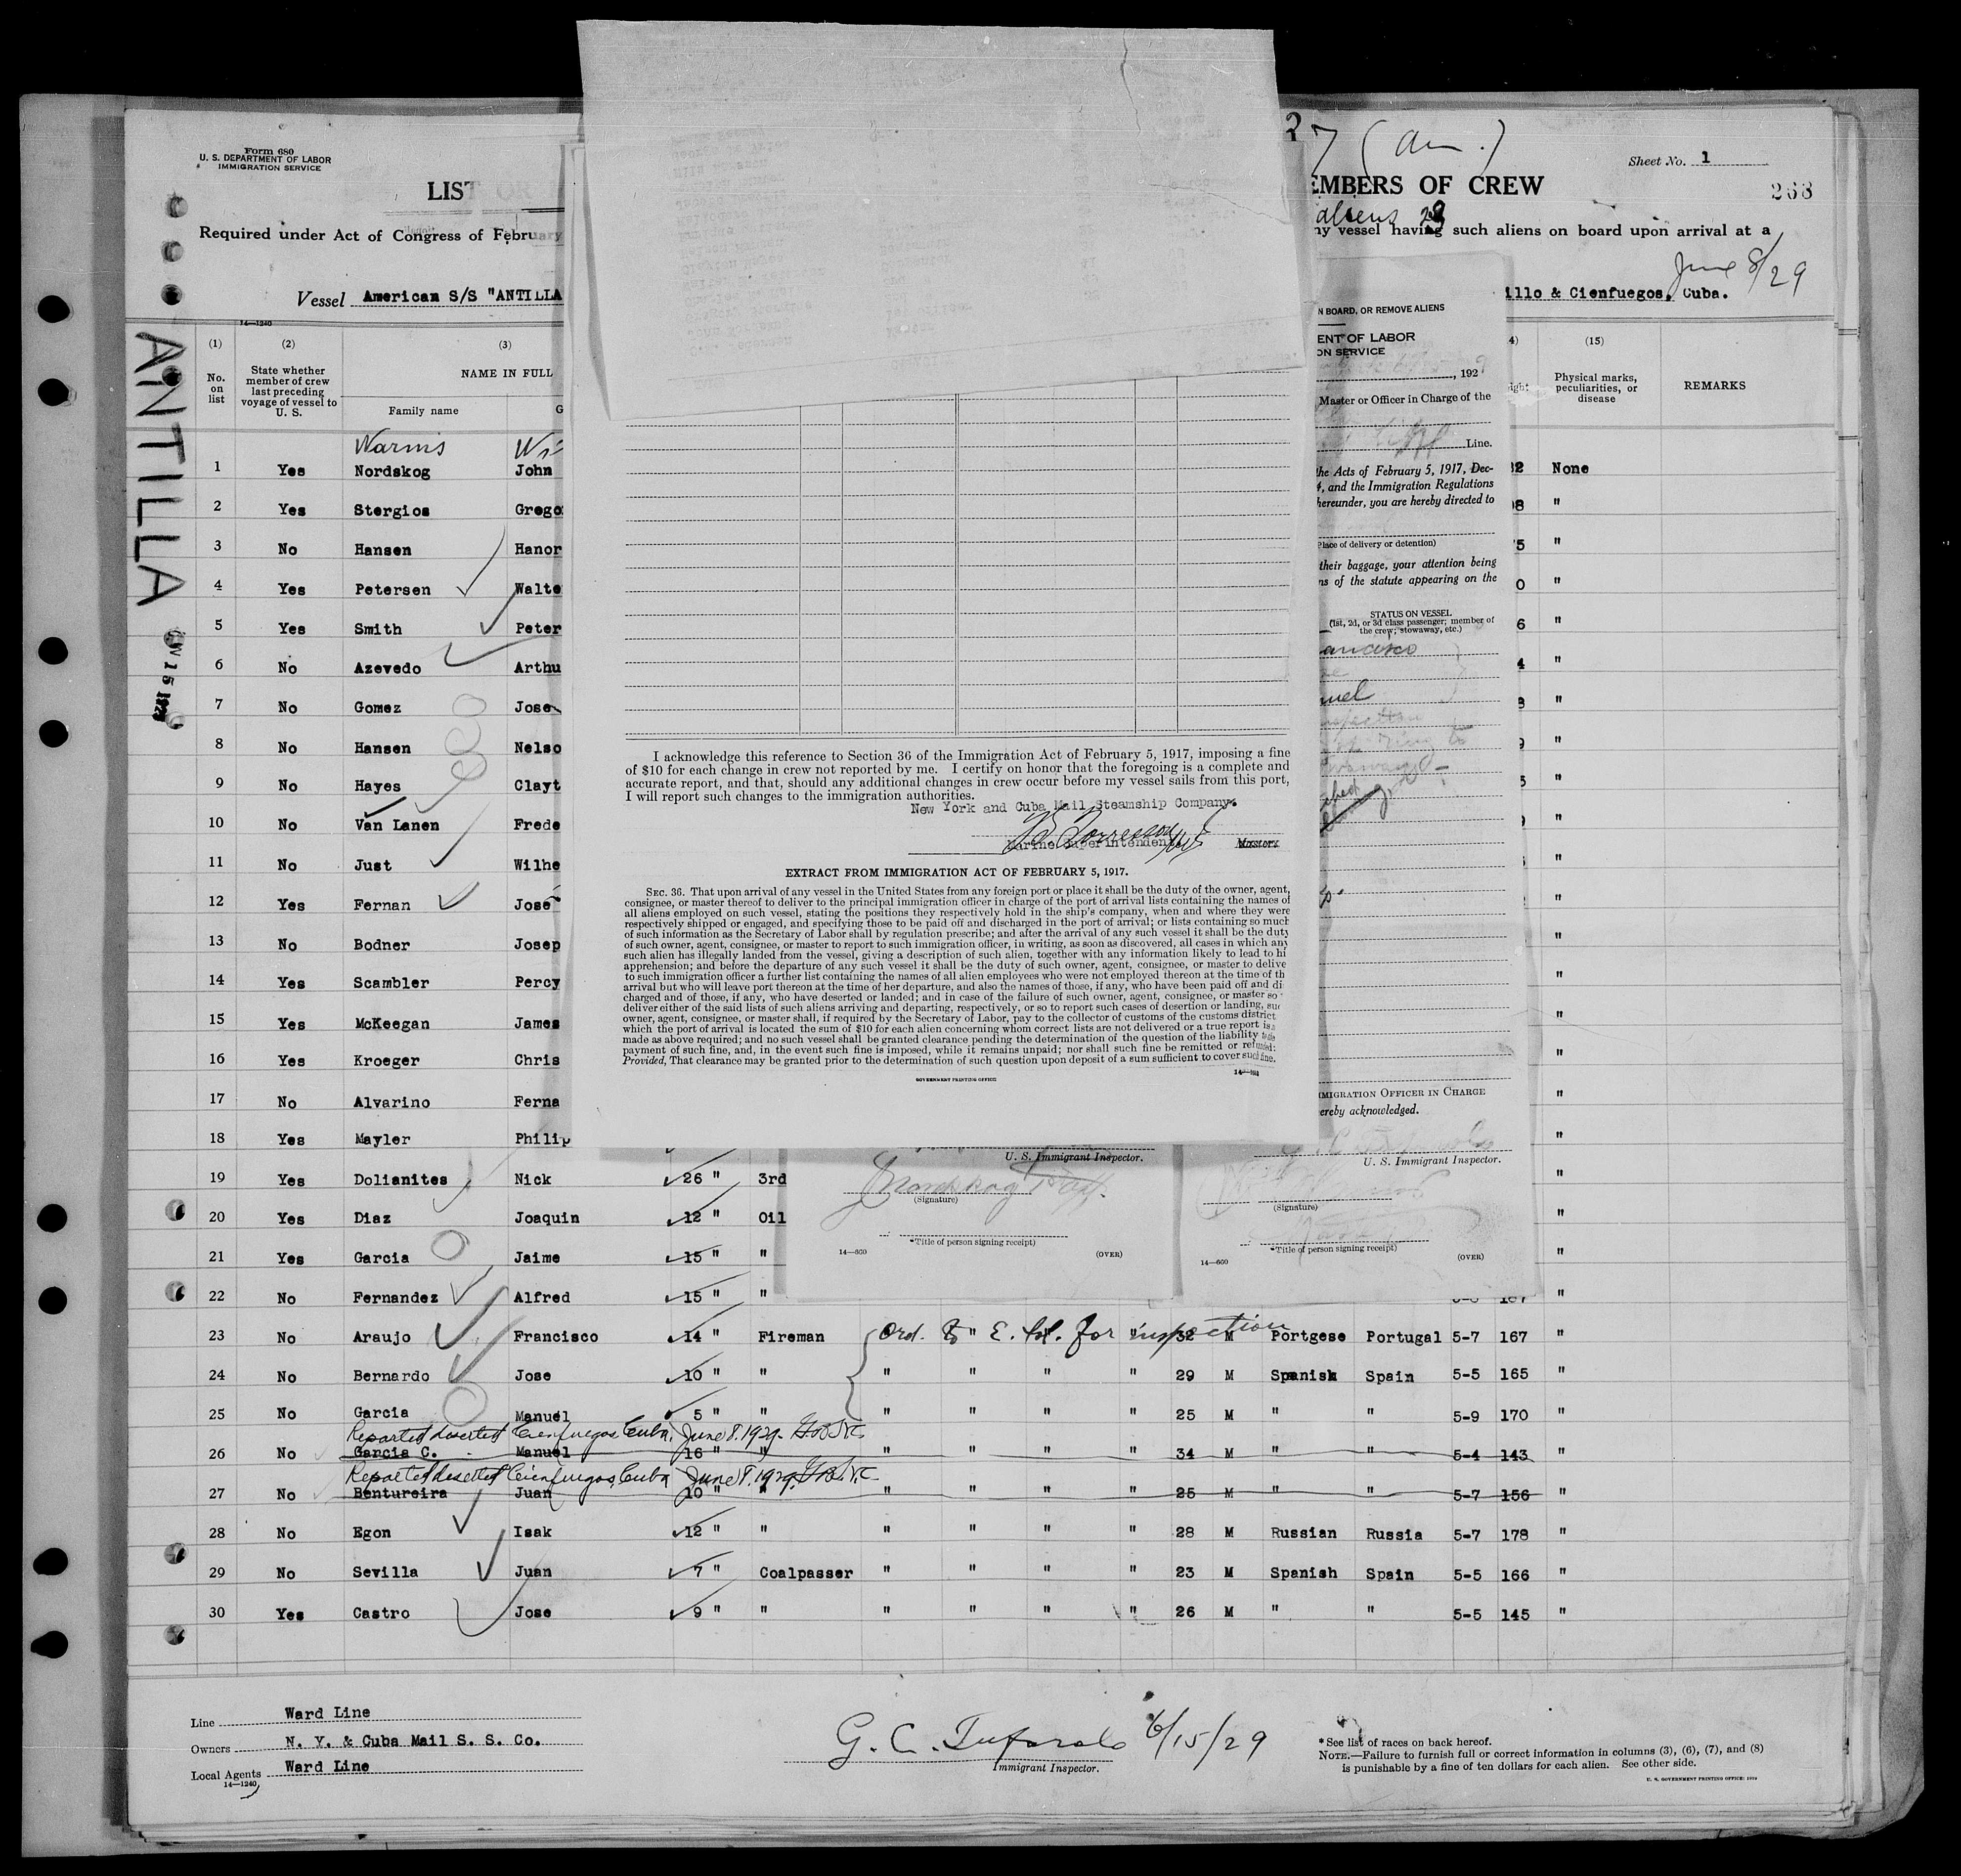 Form 680
U. S. DEPARTMENT OF LABOR
IMMIGRATION SERVICE
(Am.)
Sheet No. 1
LIST OR
EMBERS OF CREW
268
aliens 28
Required under Act of Congress of February
ny vessel having such aliens on board upon arrival at a
June 8/29
Vessel American S/S "ANTILLA
illo & Cienfuegos, Cuba.
ANTILLA
14—1240
(1) No. on list
(2) State whether member of crew last preceding voyage of vessel to U. S.
(3) NAME IN FULL
Family name
(15) Physical marks, peculiarities, or disease
REMARKS
Warms
1 Yes Nordskog John None
2 Yes Stergios Grego "
3 No Hansen Hanor "
4 Yes Petersen Walte "
5 Yes Smith Peter "
6 No Azevedo Arthu "
7 No Gomez Jose "
8 No Hansen Nelso "
9 No Hayes Clayt "
10 No Van Lanen Frede "
11 No Just Wilhe "
12 Yes Fernan Jose "
13 No Bodner Josep "
14 Yes Scambler Percy "
15 Yes McKeegan James "
16 Yes Kroeger Chris "
17 No Alvarino Ferna "
18 Yes Mayler Philip "
19 Yes Dolianites Nick 26 " 3rd "
20 Yes Diaz Joaquin 12 " Oil "
21 Yes Garcia Jaime 15 " " "
22 No Fernandez Alfred 15 " " "
Ord. to E. Isl. for inspection
23 No Araujo Francisco 14 " Fireman " " 32 M Portgese Portugal 5-7 167 "
24 No Bernardo Jose 10 " " " " " " 29 M Spanish Spain 5-5 165 "
25 No Garcia Manuel 5 " " " " " " 25 M " " 5-9 170 "
Reported deserted Cienfuegos, Cuba, June 8, 1929.
26 No Garcia C. Manuel 16 " " " " " " 34 M " " 5-4 143 "
Reported deserted Cienfuegos, Cuba June 8, 1929.
27 No Bentureira Juan 10 " " " " " " 25 M " " 5-7 156 "
28 No Egon Isak 12 " " " " " " 28 M Russian Russia 5-7 178 "
29 No Sevilla Juan 7 " Coalpasser " " " " 23 M Spanish Spain 5-5 166 "
30 Yes Castro Jose 9 " " " " " " 26 M " " 5-5 145 "
I acknowledge this reference to Section 36 of the Immigration Act of February 5, 1917, imposing a fine
of $10 for each change in crew not reported by me. I certify on honor that the foregoing is a complete and
accurate report, and that, should any additional changes in crew occur before my vessel sails from this port,
I will report such changes to the immigration authorities.
New York and Cuba Mail Steamship Company.
Marine Superintendent Master.
EXTRACT FROM IMMIGRATION ACT OF FEBRUARY 5, 1917.
SEC. 36. That upon arrival of any vessel in the United States from any foreign port or place it shall be the duty of the owner, agent,
consignee, or master thereof to deliver to the principal immigration officer in charge of the port of arrival lists containing the names of
all aliens employed on such vessel, stating the positions they respectively hold in the ship's company, when and where they were
respectively shipped or engaged, and specifying those to be paid off and discharged in the port of arrival; or lists containing so much
of such information as the Secretary of Labor shall by regulation prescribe; and after the arrival of any such vessel it shall be the duty
of such owner, agent, consignee, or master to report to such immigration officer, in writing, as soon as discovered, all cases in which any
such alien has illegally landed from the vessel, giving a description of such alien, together with any information likely to lead to hi
apprehension; and before the departure of any such vessel it shall be the duty of such owner, agent, consignee, or master to delive
to such immigration officer a further list containing the names of all alien employees who were not employed thereon at the time of th
arrival but who will leave port thereon at the time of her departure, and also the names of those, if any, who have been paid off and di
charged and of those, if any, who have deserted or landed; and in case of the failure of such owner, agent, consignee, or master so
deliver either of the said lists of such aliens arriving and departing, respectively, or so to report such cases of desertion or landing, suc
owner, agent, consignee, or master shall, if required by the Secretary of Labor, pay to the collector of customs of the customs district
which the port of arrival is located the sum of $10 for each alien concerning whom correct lists are not delivered or a true report is
made as above required; and no such vessel shall be granted clearance pending the determination of the question of the liability to the
payment of such fine, and, in the event such fine is imposed, while it remains unpaid; nor shall such fine be remitted or refunded:
Provided, That clearance may be granted prior to the determination of such question upon deposit of a sum sufficient to cover such fine.
GOVERNMENT PRINTING OFFICE
N BOARD, OR REMOVE ALIENS
ENT OF LABOR
ON SERVICE
, 192
Master or Officer in Charge of the
Line.
the Acts of February 5, 1917, Dec-
4, and the Immigration Regulations
hereunder, you are hereby directed to
Place of delivery or detention)
their baggage, your attention being
ns of the statute appearing on the
STATUS ON VESSEL
(1st, 2d, or 3d class passenger; member of
the crew; stowaway, etc.)
ancisco
nuel
MMIGRATION OFFICER IN CHARGE
ereby acknowledged.
U. S. Immigrant Inspector.
(Signature)
*Title of person signing receipt)
14—600
(OVER)
U. S. Immigrant Inspector.
(Signature)
*Title of person signing receipt)
14—600
(OVER)
Line Ward Line
Owners N. Y. & Cuba Mail S. S. Co.
Local Agents Ward Line
14—1240
6/15/29
Immigrant Inspector.
* See list of races on back hereof.
NOTE.—Failure to furnish full or correct information in columns (3), (6), (7), and (8)
is punishable by a fine of ten dollars for each alien. See other side.